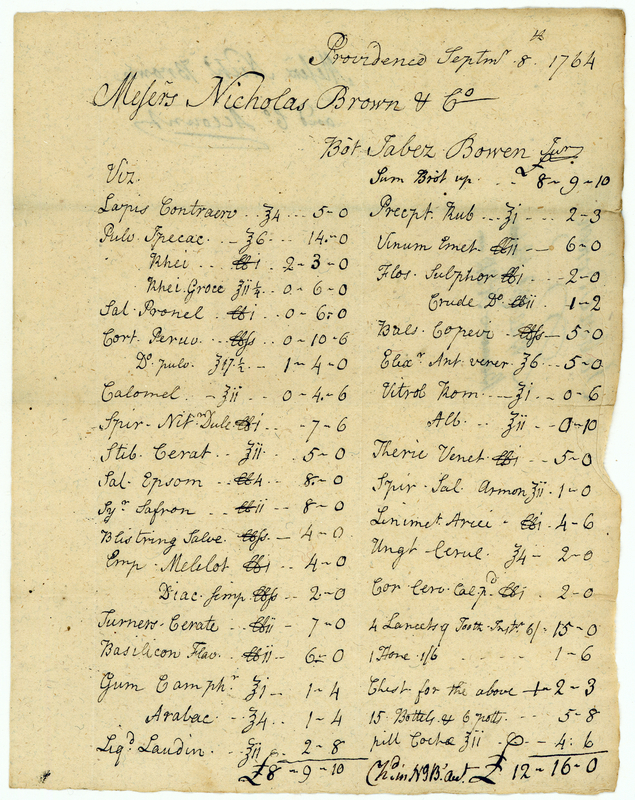 Providence Septmr. 8th 1764
Messrs Nicholas Brown & Co
Bot Jabez Bowen Junr
Viz.
Lapis Contraerv .. ʒ4 .. 5-0
Pulv Ipecac. - ʒ6 .. 14-0
Rhei .. ℔i . 2-3-0
Rhei Groce ʒii½ .. 0-6-0
Sal. Pronel .. ℔i .. 0-6-0
Cort. Peruv .. ℔ss .. 0-10-6
Do. pulv. ʒ17½ - 1-4-0
Calomel .. - ʒii 0-4-6
Spir. Nitr Dulc ℔i .. -7-6
Stib. Cerat .. ʒii .. 5-0
Sal. Epsom .. ℔4 .. 8-0
Syr Safron .. ℔ii .. 8-0
Blistring Salve .. ℔ss .. 4-0
Emp. Melelot ℔i .. 4-0
Diac. simp ℔ss .. 2-0
Turners Cerate .. ℔ii - 7-0
Basilicon Flav. .. ℔ii .. 6-0
Gum Camphr ʒi - 1-4
Arabac .. ʒ4 .. 1-4
Liqd Laudin .. ʒii 2-8
£8-9-10
Sum Brot up .. £8-9-10
Precpt. Rub .. ʒi .. 2-3
Vinum Emet. ℔ii - 6-0
Flos. Sulphor ℔i .. 2-0
Crude Do. ℔ii . 1-2
Bals. Copevi .. ℔ss - 5-0
Elixr Ant. vener ʒ6 .. 5-0
Vitrol Rom .. ʒi .. 0-6
Alb .. ʒii - 0-10
Theric Venet ℔i - 5-0
Spir. Sal Armon ʒii . 1-0
Linimet Arcei - ℔i . 4-6
Ungt Cerul ʒ4 - 2-0
Cor. Cerv. Calpd ℔i . 2-0
4 Lancets & Tooth Instr. 6/- 15-0
1 Hone 1/6 - - - 1-6
Chest for the above 1-2-3
15 Bottels & 6 potts .. 5-8
pill Cochæ ʒii .. 4-6
Chd in NB's act. £12-16-0